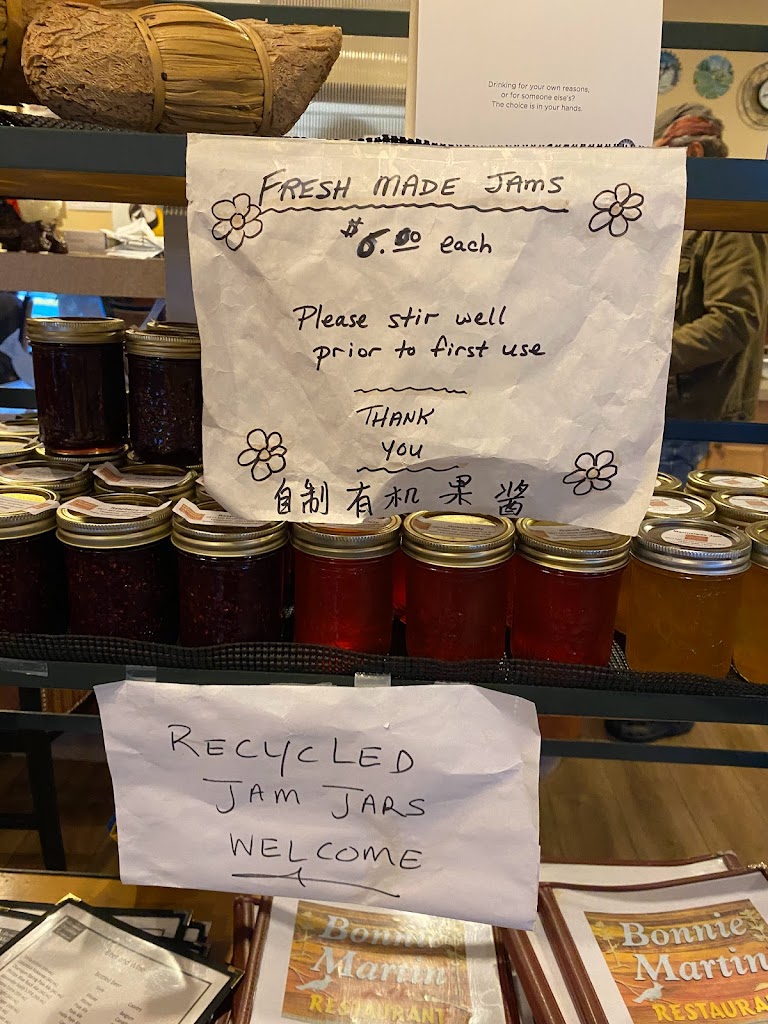 Drinking for your own reasons,
or for someone else's?
The choice is in your hands.
FRESH MADE JAMS
$6.00 each
Please stir well
prior to first use
THANK
YOU
自制有机果酱
RECYCLED
JAM JARS
WELCOME
Bonnie
Martin
RESTAURANT
Bonnie
Martin
RESTAURA